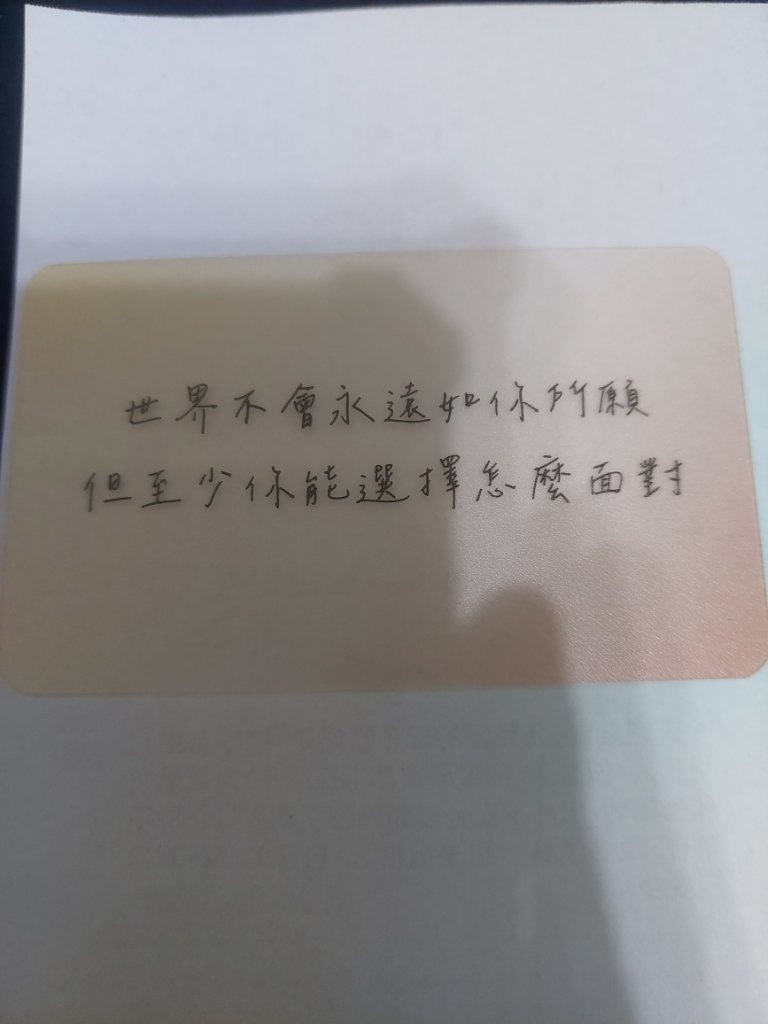 世界不會永遠如你所願
但至少你能選擇怎麼面對